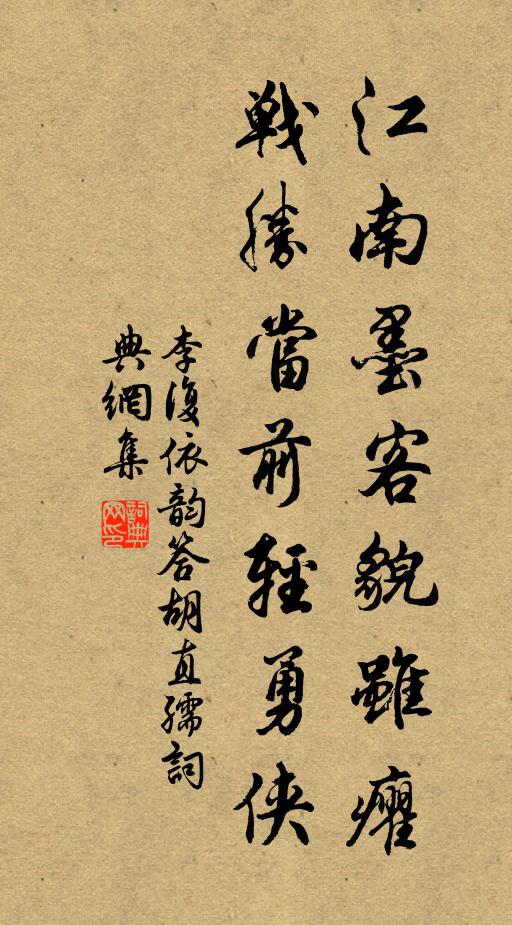 江南墨客貌雖癯
戰勝當前輕勇俠
李復依韵答胡直孺詞
典網集
詞典網印